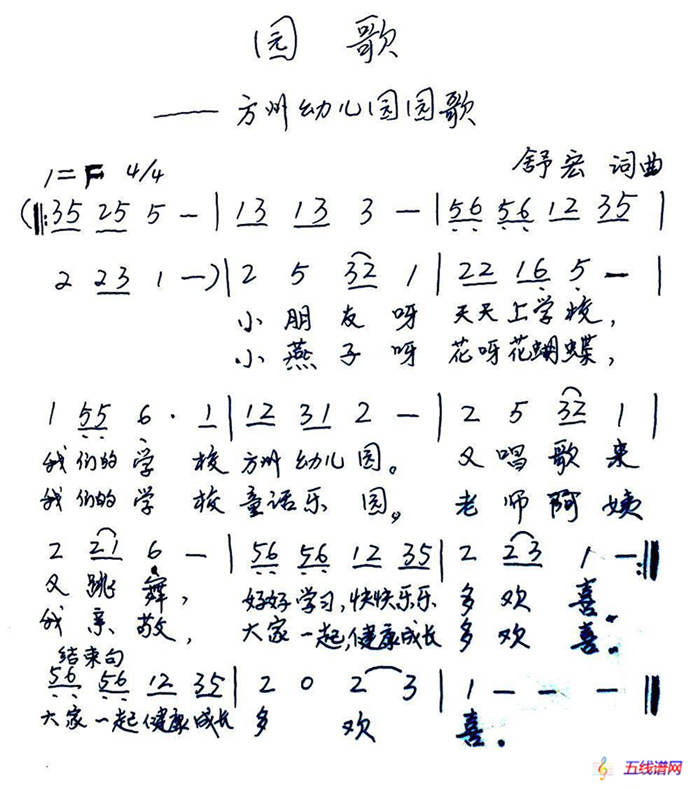 园 歌
—— 方州幼儿园园歌
1=F 4/4 舒宏 词曲
(‖: 35 25 5 - | 13 13 3 - | 56 56 12 35 |
2 23 1 -) | 2 5 32 1 | 22 16 5 - |
小朋友呀 天天上学校,
小燕子呀 花呀花蝴蝶,
1 55 6 · 1 | 12 31 2 - | 2 5 32 1 |
我们的学 校 方州幼儿园。 又唱歌来
我们的学 校 童话乐 园。 老师阿姨
2 21 6 - | 56 56 12 35 | 2 23 1 - :‖
又跳舞, 好好学习,快快乐乐 多欢 喜。
我亲敬, 大家一起,健康成长 多欢 喜。
结束句
56 56 12 35 | 2 0 2 3 | 1 - - - ‖
大家一起健康成长 多 欢 喜。
五线谱网